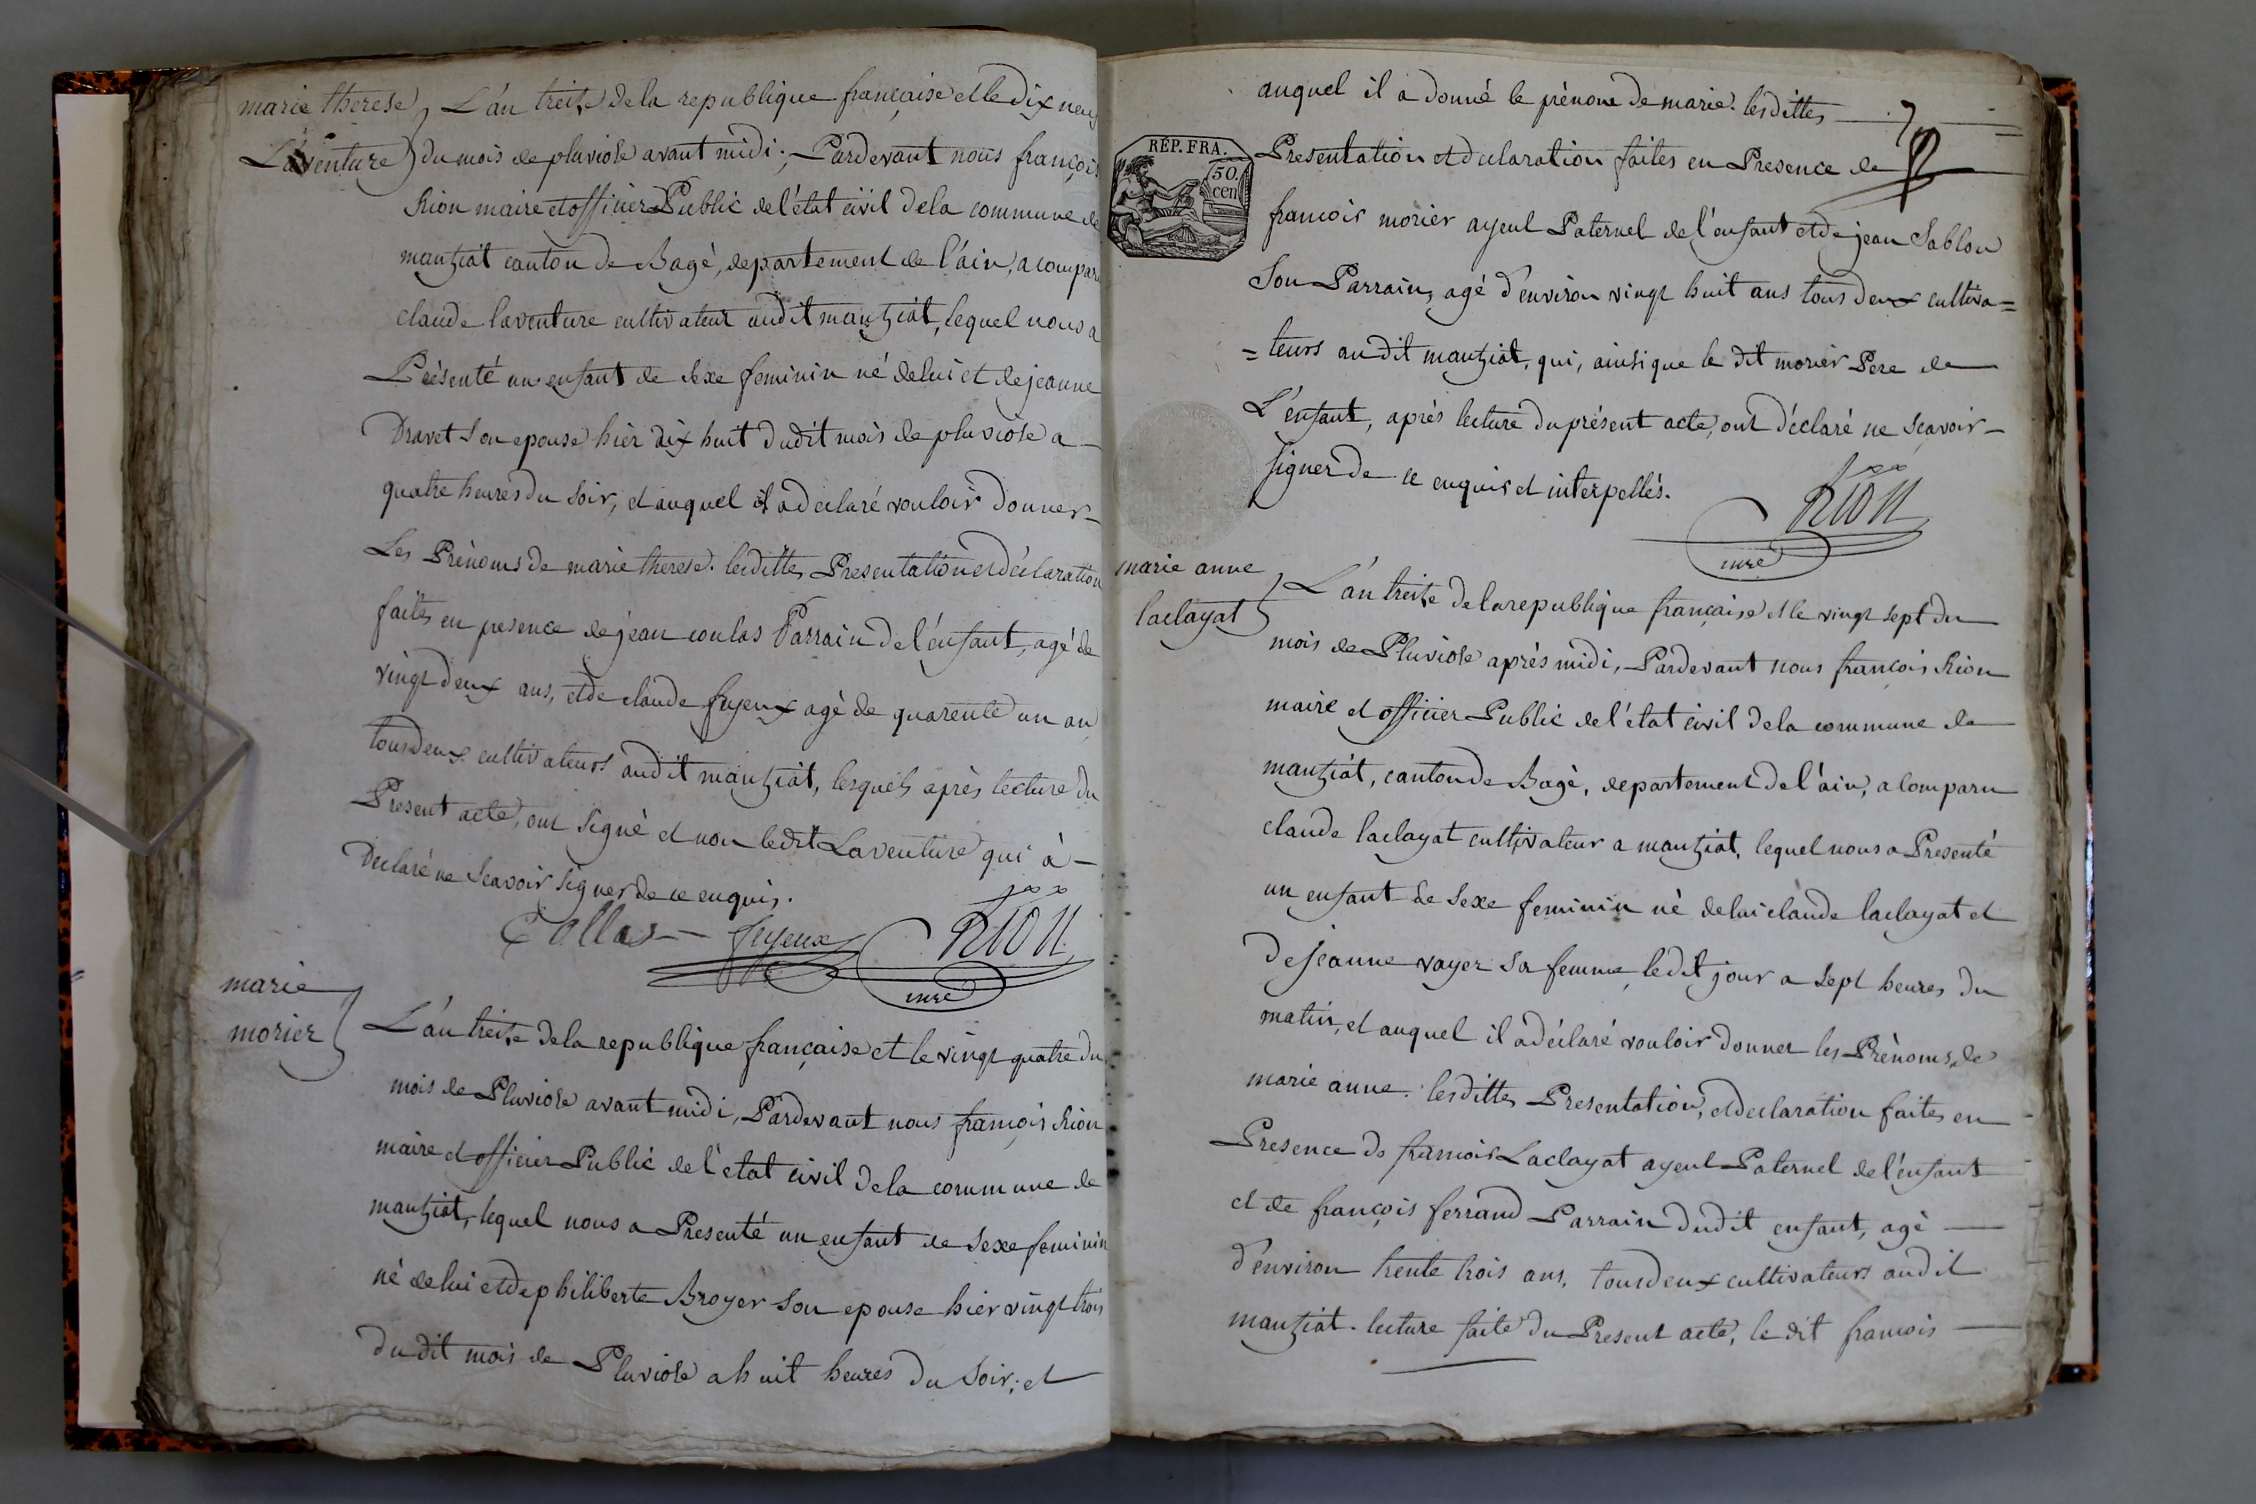 marie therese
Laventure
L'an treize de la republique française et le dix neuf
du mois de pluviose avant midi; Pardevant nous françois
Rion maire et officier Public de l'état civil de la commune de
mantziat canton de Bagé, departement de l'ain, a comparu
claude laventure cultivateur audit mantziat, lequel nous a
Présenté un enfant de sexe feminin né de lui et de jeanne
Dravet son epouse hier dix huit dudit mois de pluviose a
quatre heures du soir, et auquel il a declaré vouloir donner
Les Prénoms de marie therese. lesdittes Presentation et déclaration
faites en presence de jean coulas Parrain de l'enfant, agé de
vingt deux ans, et de claude fuyeux agé de quarente un an
tous deux cultivateurs audit mantziat, lesquels après lecture du
Present acte, ont signé et non ledit Laventure qui a
Declaré ne scavoir signer de ce enquis.
Collas fuyeux Rion
mre
marie
morier
L'an treize de la republique française et le vingt quatre du
mois de Pluviose avant midi, Pardevant nous françois Rion
maire et officier Public de l'etat civil de la commune de
mantziat, lequel nous a Presenté un enfant de sexe feminin
né de lui et de philiberte Broyer son epouse hier vingt trois
dudit mois de Pluviose a huit heures du soir; et
auquel il a donné le prénom de marie. lesdittes
RÉP. FRA.
50.
cen
Presentation et declaration faites en Presence de
francois morier ayeul Paternel de l'enfant et de jean Sablon
Son Parrain, agé d'environ vingt huit ans tous deux cultiva=
=teurs audit mantziat, qui, ainsi que le dit morier Pere de
L'enfant, après lecture du présent acte, ont déclaré ne scavoir
signer de ce enquis et interpellés.
Rion
mre
marie anne
laclayat
L'an treize de la republique française et le vingt sept du
mois de Pluviose après midi, Pardevant nous françois Rion
maire et officier Public de l'état civil de la commune de
mantziat, canton de Bagé, departement de l'ain, a comparu
claude laclayat cultivateur a mantziat, lequel nous a Presenté
un enfant de sexe feminin né de lui claude laclayat et
de jeanne voyer sa femme, ledit jour a sept heures du
matin, et auquel il a déclaré vouloir donner les Prénoms de
marie anne. lesdittes Presentation, et declaration faites en
Presence de francois Laclayat ayeul Paternel de l'enfant
et de françois ferrand Parrain dudit enfant, agé
d'environ trente trois ans, tous deux cultivateurs audit
mantziat. lecture faite du Present acte, le dit francois